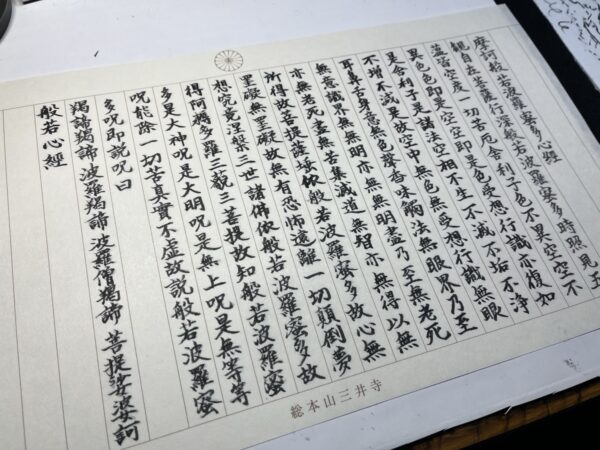 摩訶般若波羅蜜多心經
観自在菩薩行深般若波羅蜜多時照見五
蘊皆空度一切苦厄舎利子色不異空空不
異色色即是空空即是色受想行識亦復如
是舎利子是諸法空相不生不滅不垢不浄
不増不減是故空中無色無受想行識無眼
耳鼻舌身意無色聲香味觸法無眼界乃至
無意識界無無明亦無無明盡乃至無老死
亦無老死盡無苦集滅道無智亦無得以無
所得故菩提薩埵依般若波羅蜜多故心無
罣礙無罣礙故無有恐怖遠離一切顛倒夢
想究竟涅槃三世諸佛依般若波羅蜜多故
得阿耨多羅三藐三菩提故知般若波羅蜜
多是大神呪是大明呪是無上呪是無等等
呪能除一切苦真實不虚故説般若波羅蜜
多呪即説呪曰
羯諦羯諦 波羅羯諦 波羅僧羯諦 菩提娑婆訶
般若心經
総本山三井寺